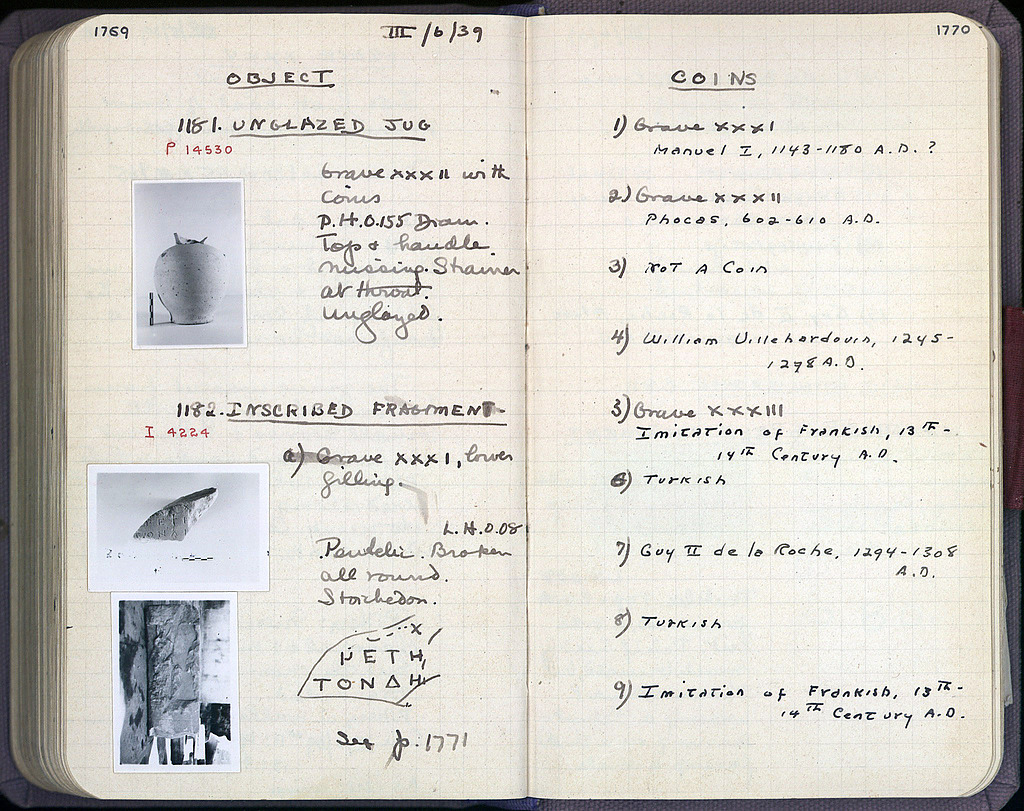 1769
III/6/39
OBJECT
1181. UNGLAZED JUG
P 14530
Grave XXXII with
Coins
P.H.0.155 Diam.
Top & handle
missing. Strainer
at throat.
Unglazed.
1182. INSCRIBED FRAGMENT.
I 4224
a) Grave XXXI, lower
filling.
L.H.0.08
Pentelic. Broken
all round.
Stoichedon.
ΕΤΗ
ΤΟΝΔΗ
See p. 1771
1770
COINS
1) Grave XXXI
Manuel I, 1143-1180 A.D. ?
2) Grave XXXII
Phocas, 602-610 A.D.
3) Not A Coin
4) William Villehardouin, 1245-
1278 A.D.
5) Grave XXXIII
Imitation of Frankish, 13th-
14th Century A.D.
6) Turkish
7) Guy II de la Roche, 1294-1308
A.D.
8) Turkish
9) Imitation of Frankish, 13th-
14th Century A.D.